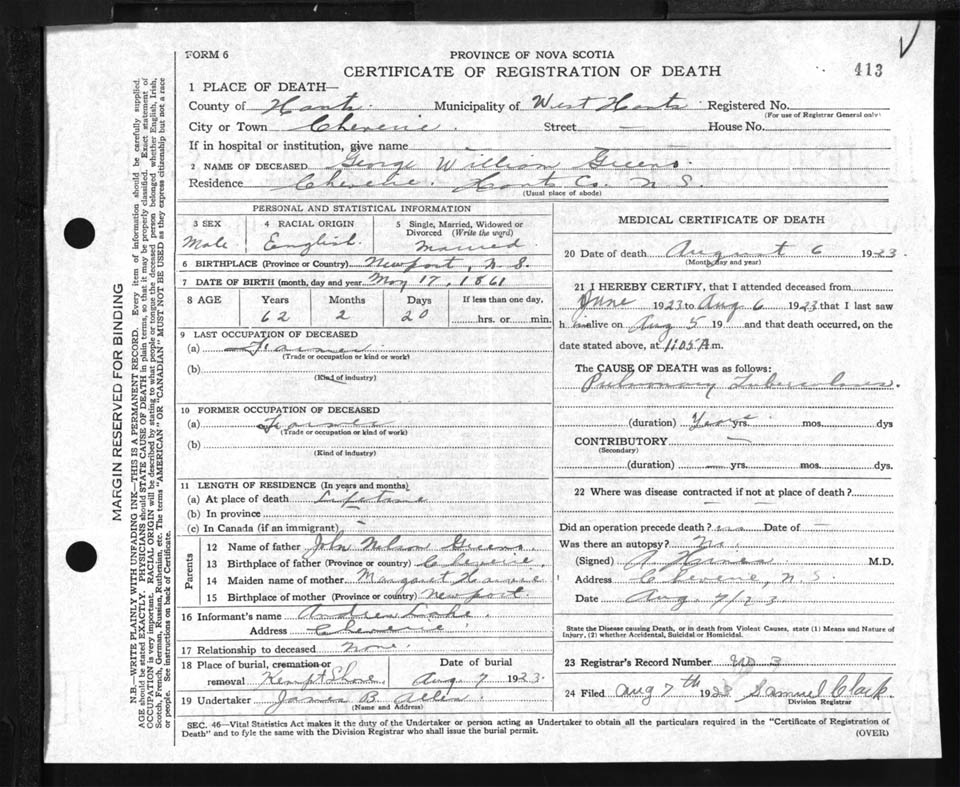 FORM 6
PROVINCE OF NOVA SCOTIA
CERTIFICATE OF REGISTRATION OF DEATH
413
1 PLACE OF DEATH—
County of Hants. Municipality of West Hants Registered No.
(For use of Registrar General only)
City or Town Cheverie. Street — House No.
If in hospital or institution, give name
2 NAME OF DECEASED George William Greeno.
Residence Cheverie. Hants Co. N. S.
(Usual place of abode)
PERSONAL AND STATISTICAL INFORMATION
3 SEX 4 RACIAL ORIGIN 5 Single, Married, Widowed or
Divorced (Write the word)
Male English. Married.
6 BIRTHPLACE (Province or Country) Newport, N. S.
7 DATE OF BIRTH (month, day and year) May 17, 1861
8 AGE Years Months Days If less than one day,
62 2 20 hrs. or min.
9 LAST OCCUPATION OF DECEASED
(a) Farmer
(Trade or occupation or kind or work)
(b)
(Kind of industry)
10 FORMER OCCUPATION OF DECEASED
(a) Farmer
(Trade or occupation or kind of work)
(b)
(Kind of industry)
11 LENGTH OF RESIDENCE (In years and months)
(a) At place of death Lifetime
(b) In province
(c) In Canada (if an immigrant) —
Parents
12 Name of father John Nelson Greeno.
13 Birthplace of father (Province or country) Cheverie.
14 Maiden name of mother Margaret
15 Birthplace of mother (Province or country) Newport.
16 Informant's name Andrew Lake.
Address Cheverie
17 Relationship to deceased None.
18 Place of burial, cremation or Date of burial
removal Kempt Shore. Aug. 7 1923.
19 Undertaker James B. Allen
(Name and Address)
MEDICAL CERTIFICATE OF DEATH
20 Date of death August 6 1923
(Month, day and year)
21 I HEREBY CERTIFY, that I attended deceased from
June 1923 to Aug 6 1923 that I last saw
h im alive on Aug 5 19 and that death occurred, on the
date stated above, at 11.05 A m.
The CAUSE OF DEATH was as follows:
Pulmonary Tuberculosis.
(duration) Years yrs. mos. dys
CONTRIBUTORY —
(Secondary)
(duration) — yrs. mos. dys.
22 Where was disease contracted if not at place of death?
Did an operation precede death? Date of —
Was there an autopsy? No.
(Signed) M.D.
Address Cheverie, N. S.
Date Aug. 7/23
State the Disease causing Death, or in death from Violent Causes, state (1) Means and Nature of
Injury, (2) whether Accidental, Suicidal or Homicidal.
23 Registrar's Record Number 3
24 Filed Aug 7th 1923 Samuel Clark.
Division Registrar
SEC. 46—Vital Statistics Act makes it the duty of the Undertaker or person acting as Undertaker to obtain all the particulars required in the "Certificate of Registration of
Death" and to fyle the same with the Division Registrar who shall issue the burial permit.
(OVER)
MARGIN RESERVED FOR BINDING
N.B.—WRITE PLAINLY WITH UNFADING INK—THIS IS A PERMANENT RECORD. Every item of information should be carefully supplied.
AGE should be stated EXACTLY. PHYSICIANS should STATE CAUSE OF DEATH in plain terms, so that it may be properly classified. Exact statement of
OCCUPATION is very important. RACIAL ORIGIN will be described by stating to what people or tongue the deceased person belonged whether English, Irish,
Scotch, French, German, Russian, Ruthenian, etc. The terms "AMERICAN" OR "CANADIAN" MUST NOT BE USED as they express citizenship but not a race
or people. See instructions on back of Certificate.